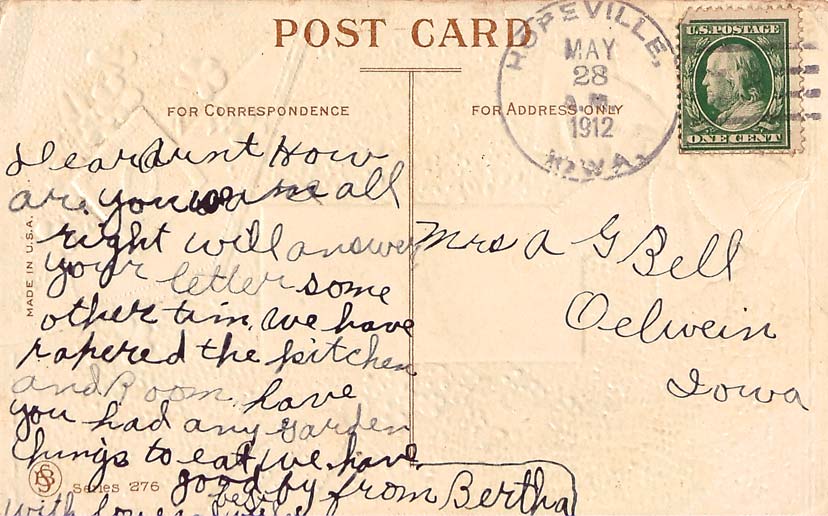 POST CARD
HOPEVILLE,
MAY
28
A.M.
1912
IOWA.
U.S. POSTAGE
ONE CENT
FOR CORRESPONDENCE
FOR ADDRESS ONLY
Dear Aunt How
are you we are all
right will answer
your letter some
other tim, we have
papered the kitchen
and Room. have
you had any garden
things to eat, we have
good by from Bertha
with love
Mrs A G Bell
Oelwein
Iowa
MADE IN U.S.A.
Series 276